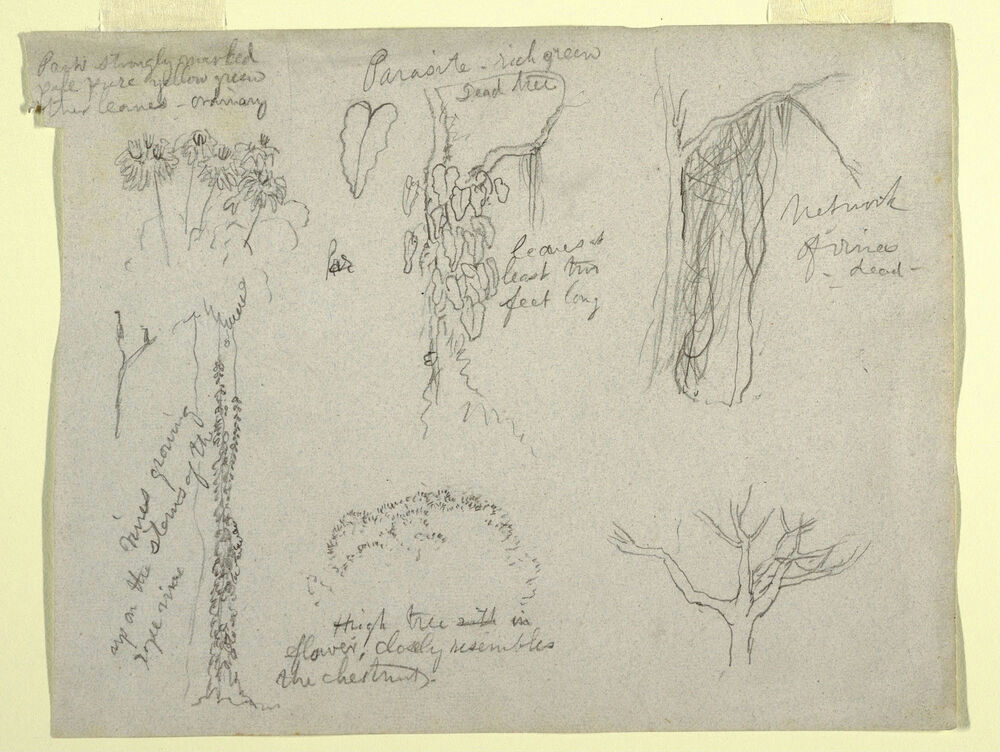 Parts strongly marked
pale pure yellow green
other leaves - ordinary
Parasite - rich green
Dead tree
leaves at
least two
feet long
Network
of vines
- dead -
vines growing
up on the stems of the
large vine
High tree with in
flower, closely resembles
the chestnut.